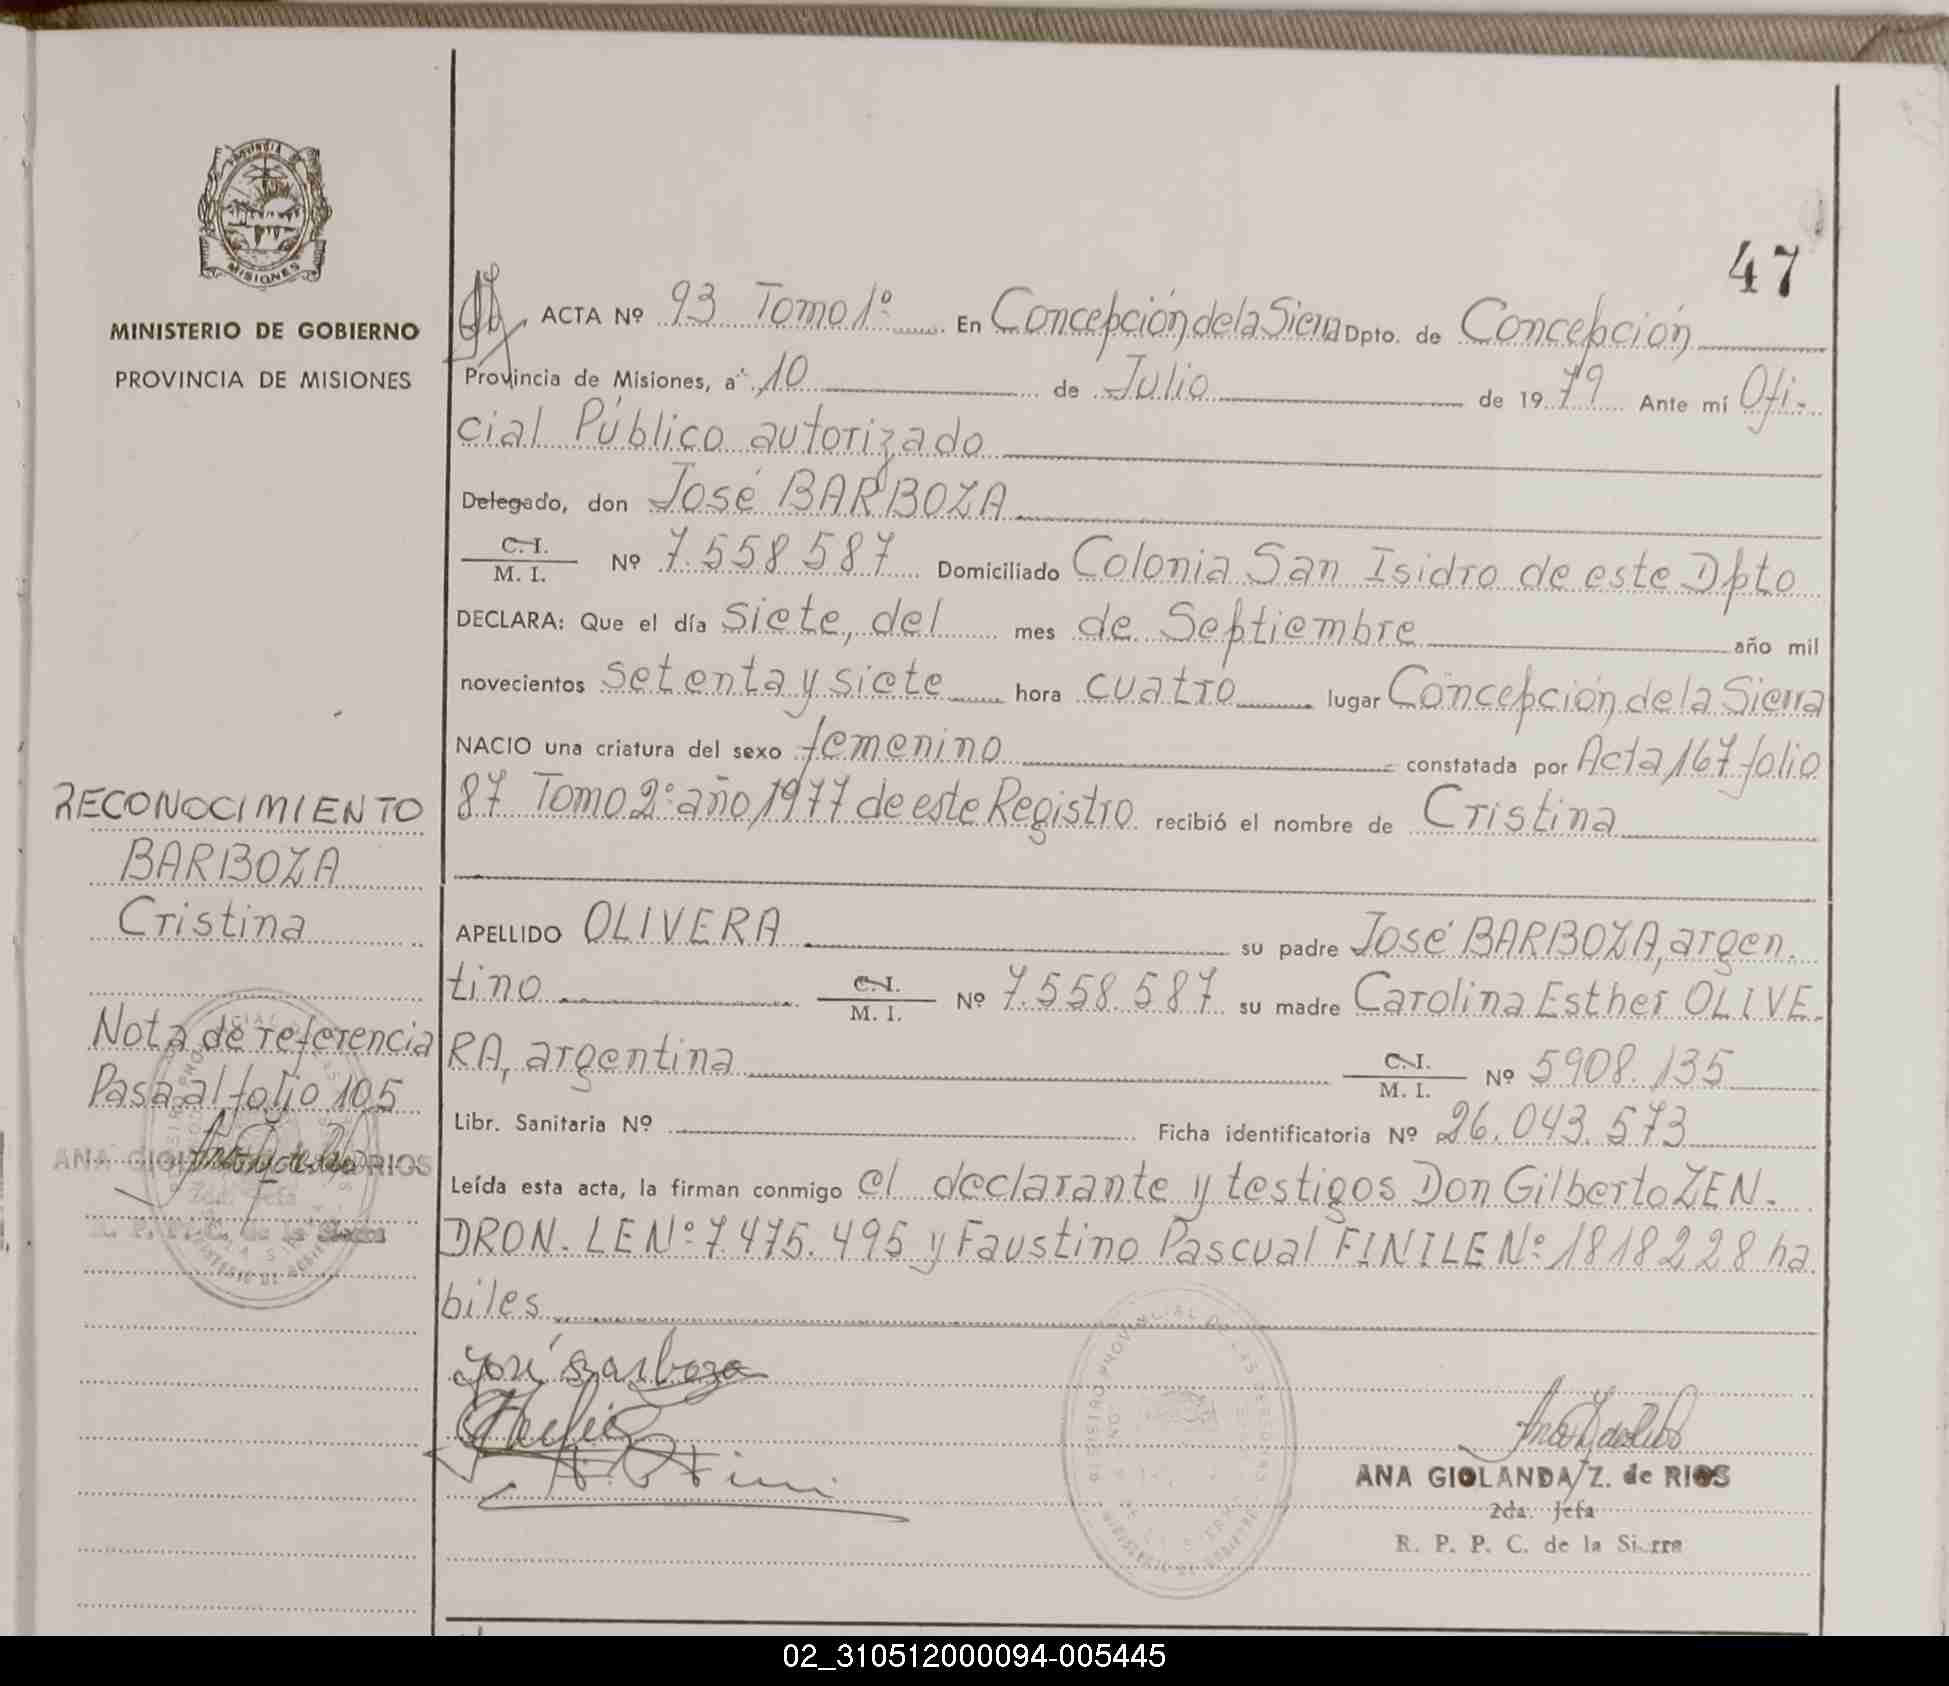 PROVINCIA DE
MISIONES
MINISTERIO DE GOBIERNO
PROVINCIA DE MISIONES
RECONOCIMIENTO
BARBOZA
Cristina
Nota de referencia
Pasa al folio 105
47
ACTA Nº 93 Tomo 1º En Concepción de la Sierra Dpto. de Concepción
Provincia de Misiones, a 10 de Julio de 1979 Ante mí Ofi-
cial Público autorizado
Delegado, don José BARBOZA
C. I.
M. I. Nº 7.558.587 Domiciliado Colonia San Isidro de este Dpto
DECLARA: Que el día siete, del mes de Septiembre año mil
novecientos setenta y siete hora cuatro lugar Concepción de la Sierra
NACIO una criatura del sexo femenino constatada por Acta 167 folio
87 Tomo 2º año 1977 de este Registro recibió el nombre de Cristina
APELLIDO OLIVERA su padre José BARBOZA, argen-
tino C. I.
M. I. Nº 7.558.587 su madre Carolina Esther OLIVE-
RA, argentina C. I.
M. I. Nº 5908.135
Libr. Sanitaria Nº Ficha identificatoria Nº 26.043.573
Leída esta acta, la firman conmigo el declarante y testigos Don Gilberto ZEN-
DRON. LE Nº 7.475.495 y Faustino Pascual FINI LE Nº 1818228 ha
biles
José Barboza
ANA GIOLANDA Z. de RIOS
2da. Jefa
R. P. P. C. de la Sierra
02_310512000094-005445